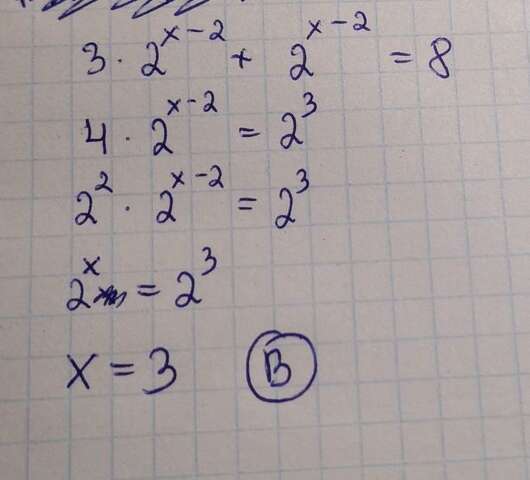 3 · 2^{x-2} + 2^{x-2} = 8
4 · 2^{x-2} = 2^3
2^2 · 2^{x-2} = 2^3
2^x = 2^3
x = 3 B